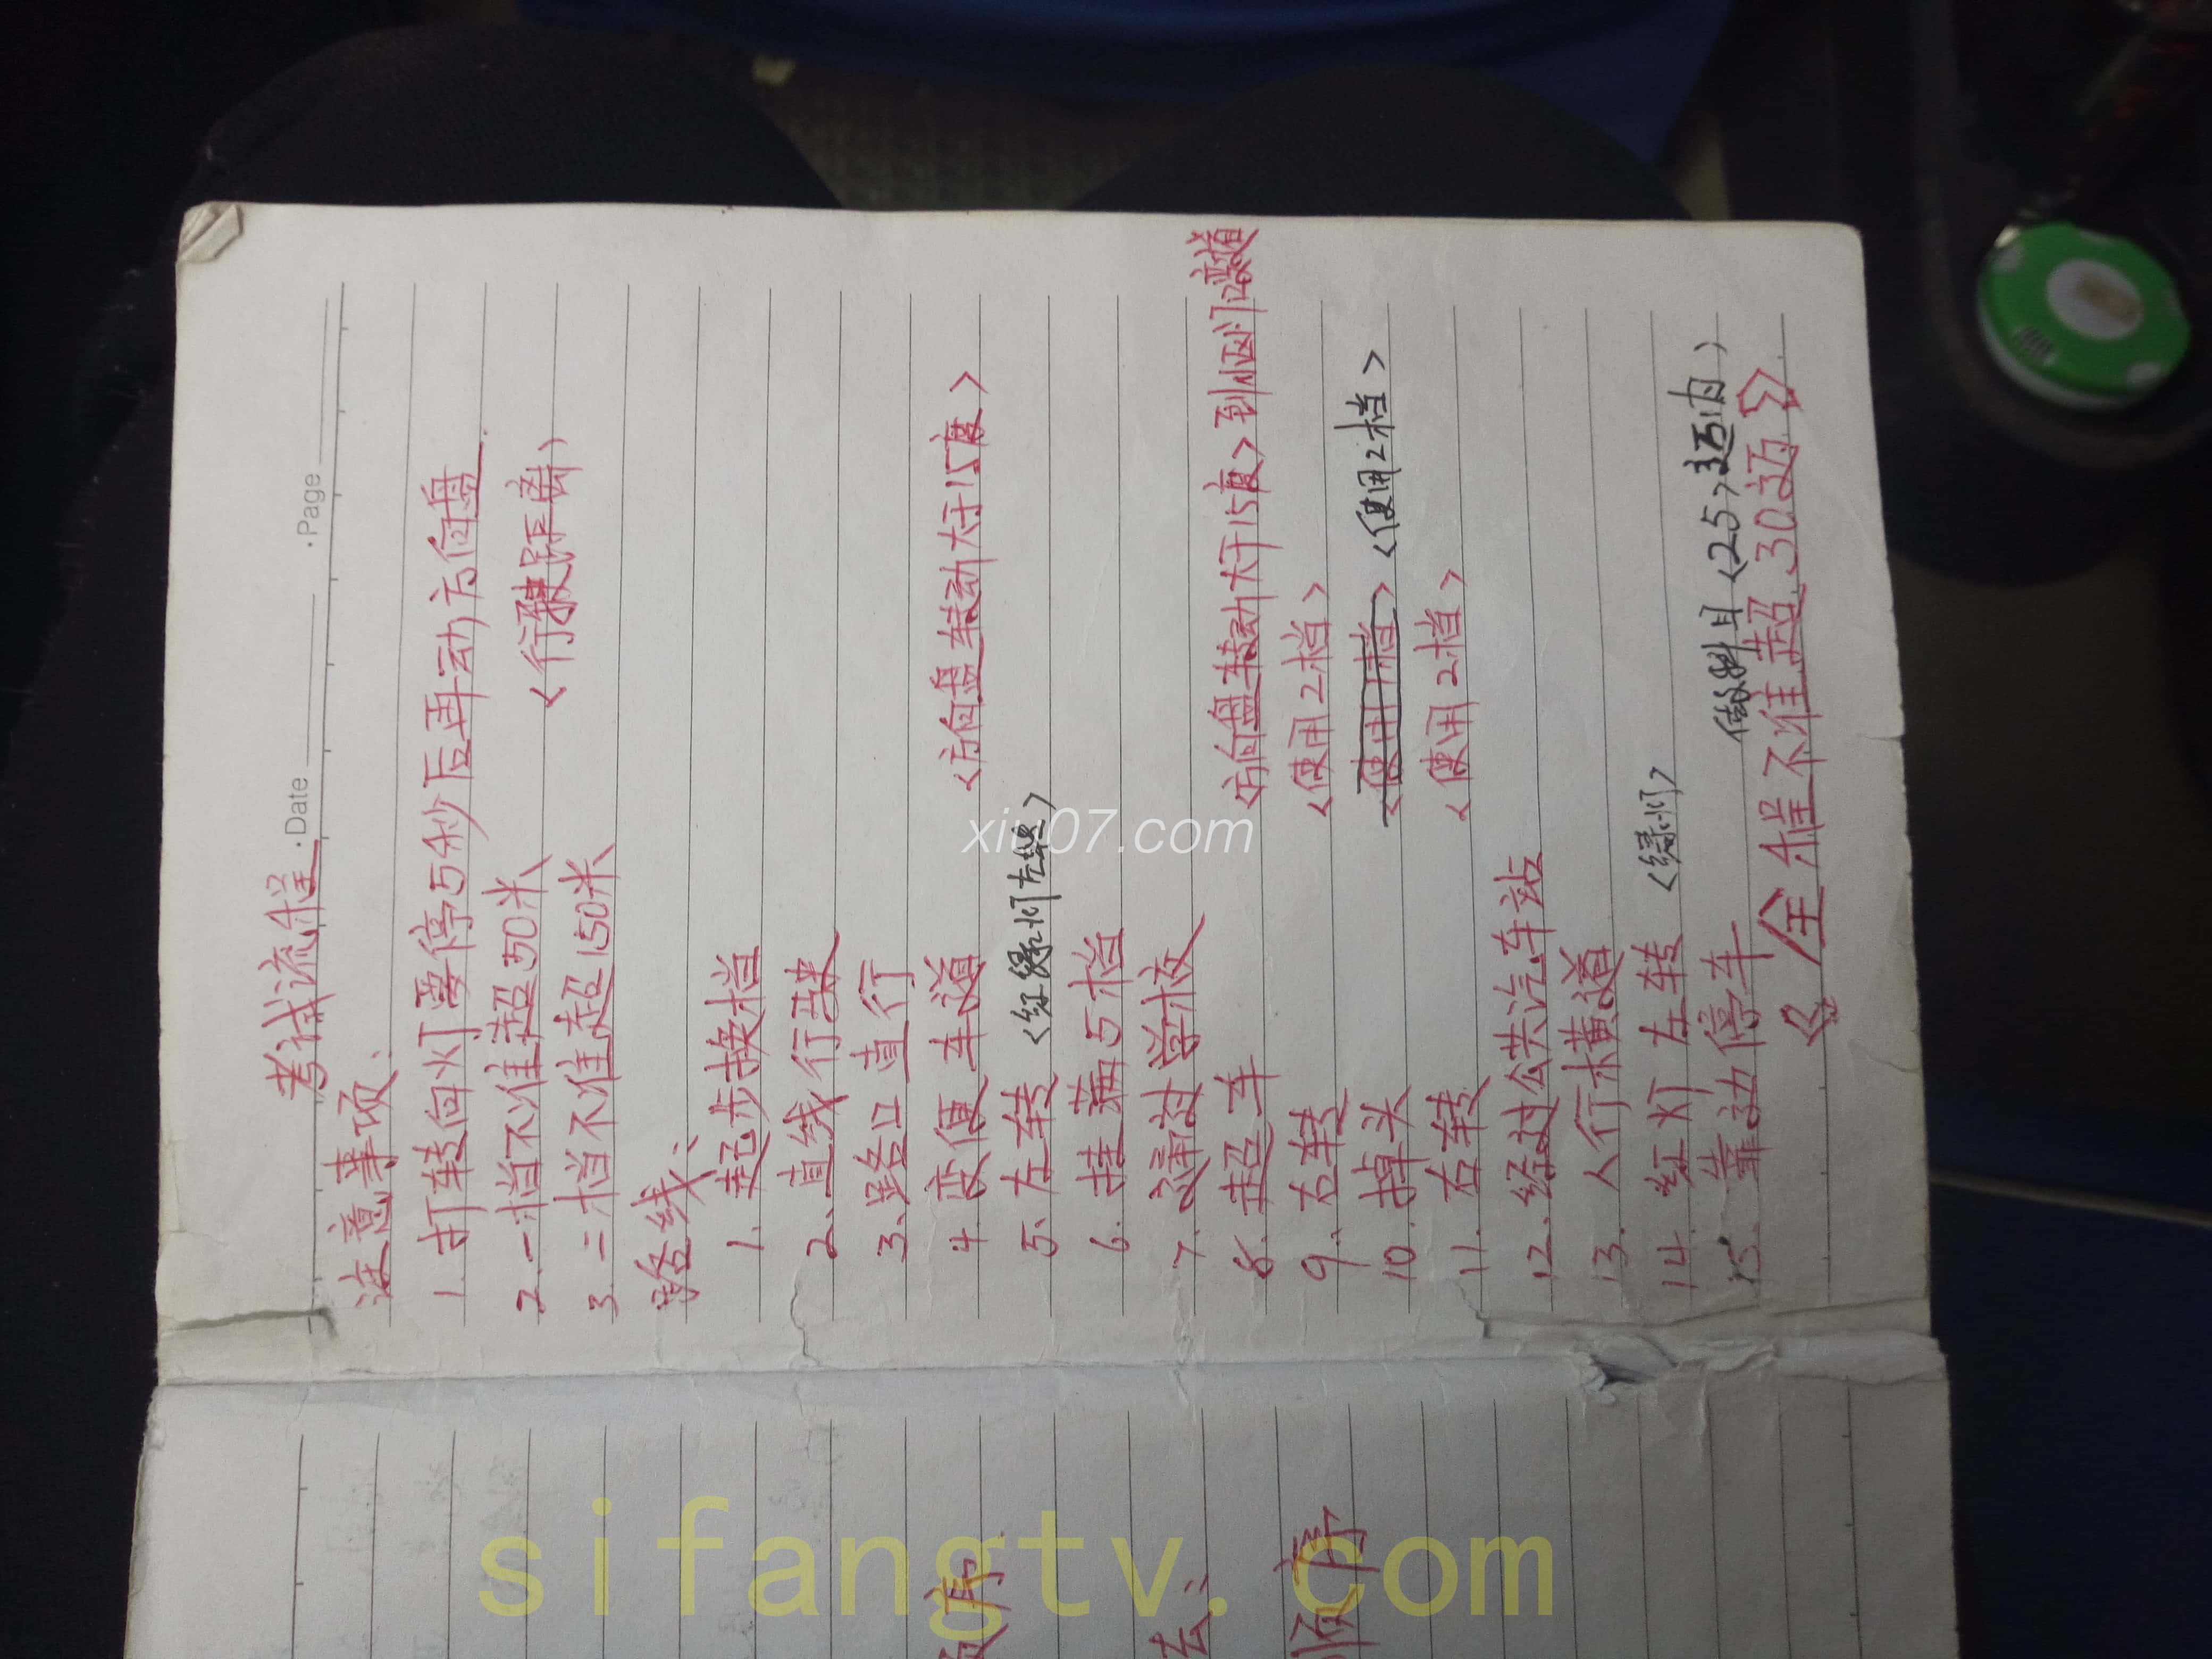 ·Date ·Page
考试流程
注意事项:
1. 打转向灯要停5秒后再动方向盘
2. 一档不准超50米 <行驶距离>
3. 二档不准超150米
路线:
1. 起步换档
2. 直线行驶
3. 路口直行
4 变便车道 <方向盘转动大于15度>
5. 左转 <红绿灯左转>
6. 挂蒲5档
7. 通过学校
8. 超车 <方向盘转动大于15度> 到 变道
9. 右转 <使用2档>
10. 掉头 <使用1档> <使用2档>
11. 右转 <使用2档>
12. 经过公共汽车站
13. 人行横道
14. 红灯左转 <绿灯>
15. 靠边停车 做科目<25>迈内
《全程不准超30迈》
序
法:
顺序
xiu07.com
sifangtv.com